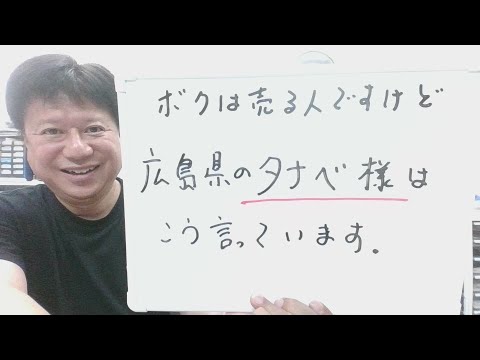 ボクは売る人ですけど
広島県のタナベ様は
こう言っています.